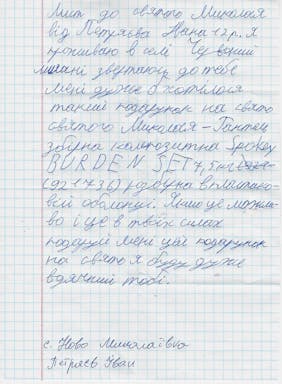 Лист до святого Миколая
від Петряєва Івана 12 р. Я
проживаю в селі Червоний
маяні звертаюсь до тебе
мені дуже б хотілося
такий подарунок на свято
святого Миколая – Гантеля
збірна композитна Spokey
BURDEN SET 7,5 кг
(921736) розбірна в пластико-
вій оболонці. Якщо це можли-
во і це в твоїх силах
подаруй мені цей подарунок
на свято я буду дуже
вдячний тобі.
с. Ново Миколаївка
Петряєв Іван